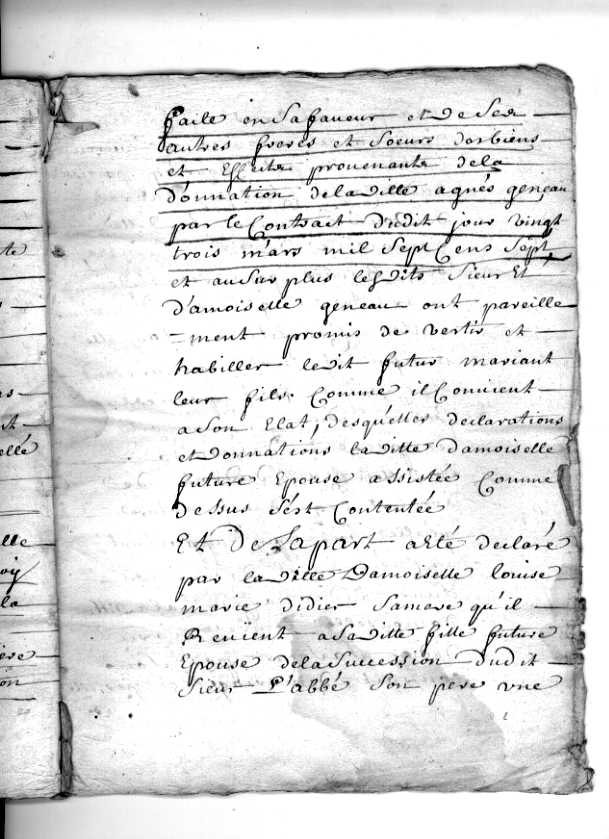 faite en sa faveur et de ses
autres freres et soeurs desbiens
et Effects provenants dela
donnation deladitte agnés geneau
par le Contract dudit jour vingt
trois mars mil sept Cens sept
et au Surplus lesdits Sieur Et
D'amoiselle geneau ont pareille
=ment promis de vertir et
habiller ledit futur mariant
leur fils. Comme il Convient
a son Etat, desquelles declarations
et donnations laditte damoiselle
future Epouse assistée Comme
dessus s'est Contentée
Et De Sapart a eté declaré
par laditte Damoiselle louise
marie didier Samere qu'il
Revient asaditte fille future
Epouse delasuccession dudit
Sieur L'abbé son pere une
te
elle
lle
la